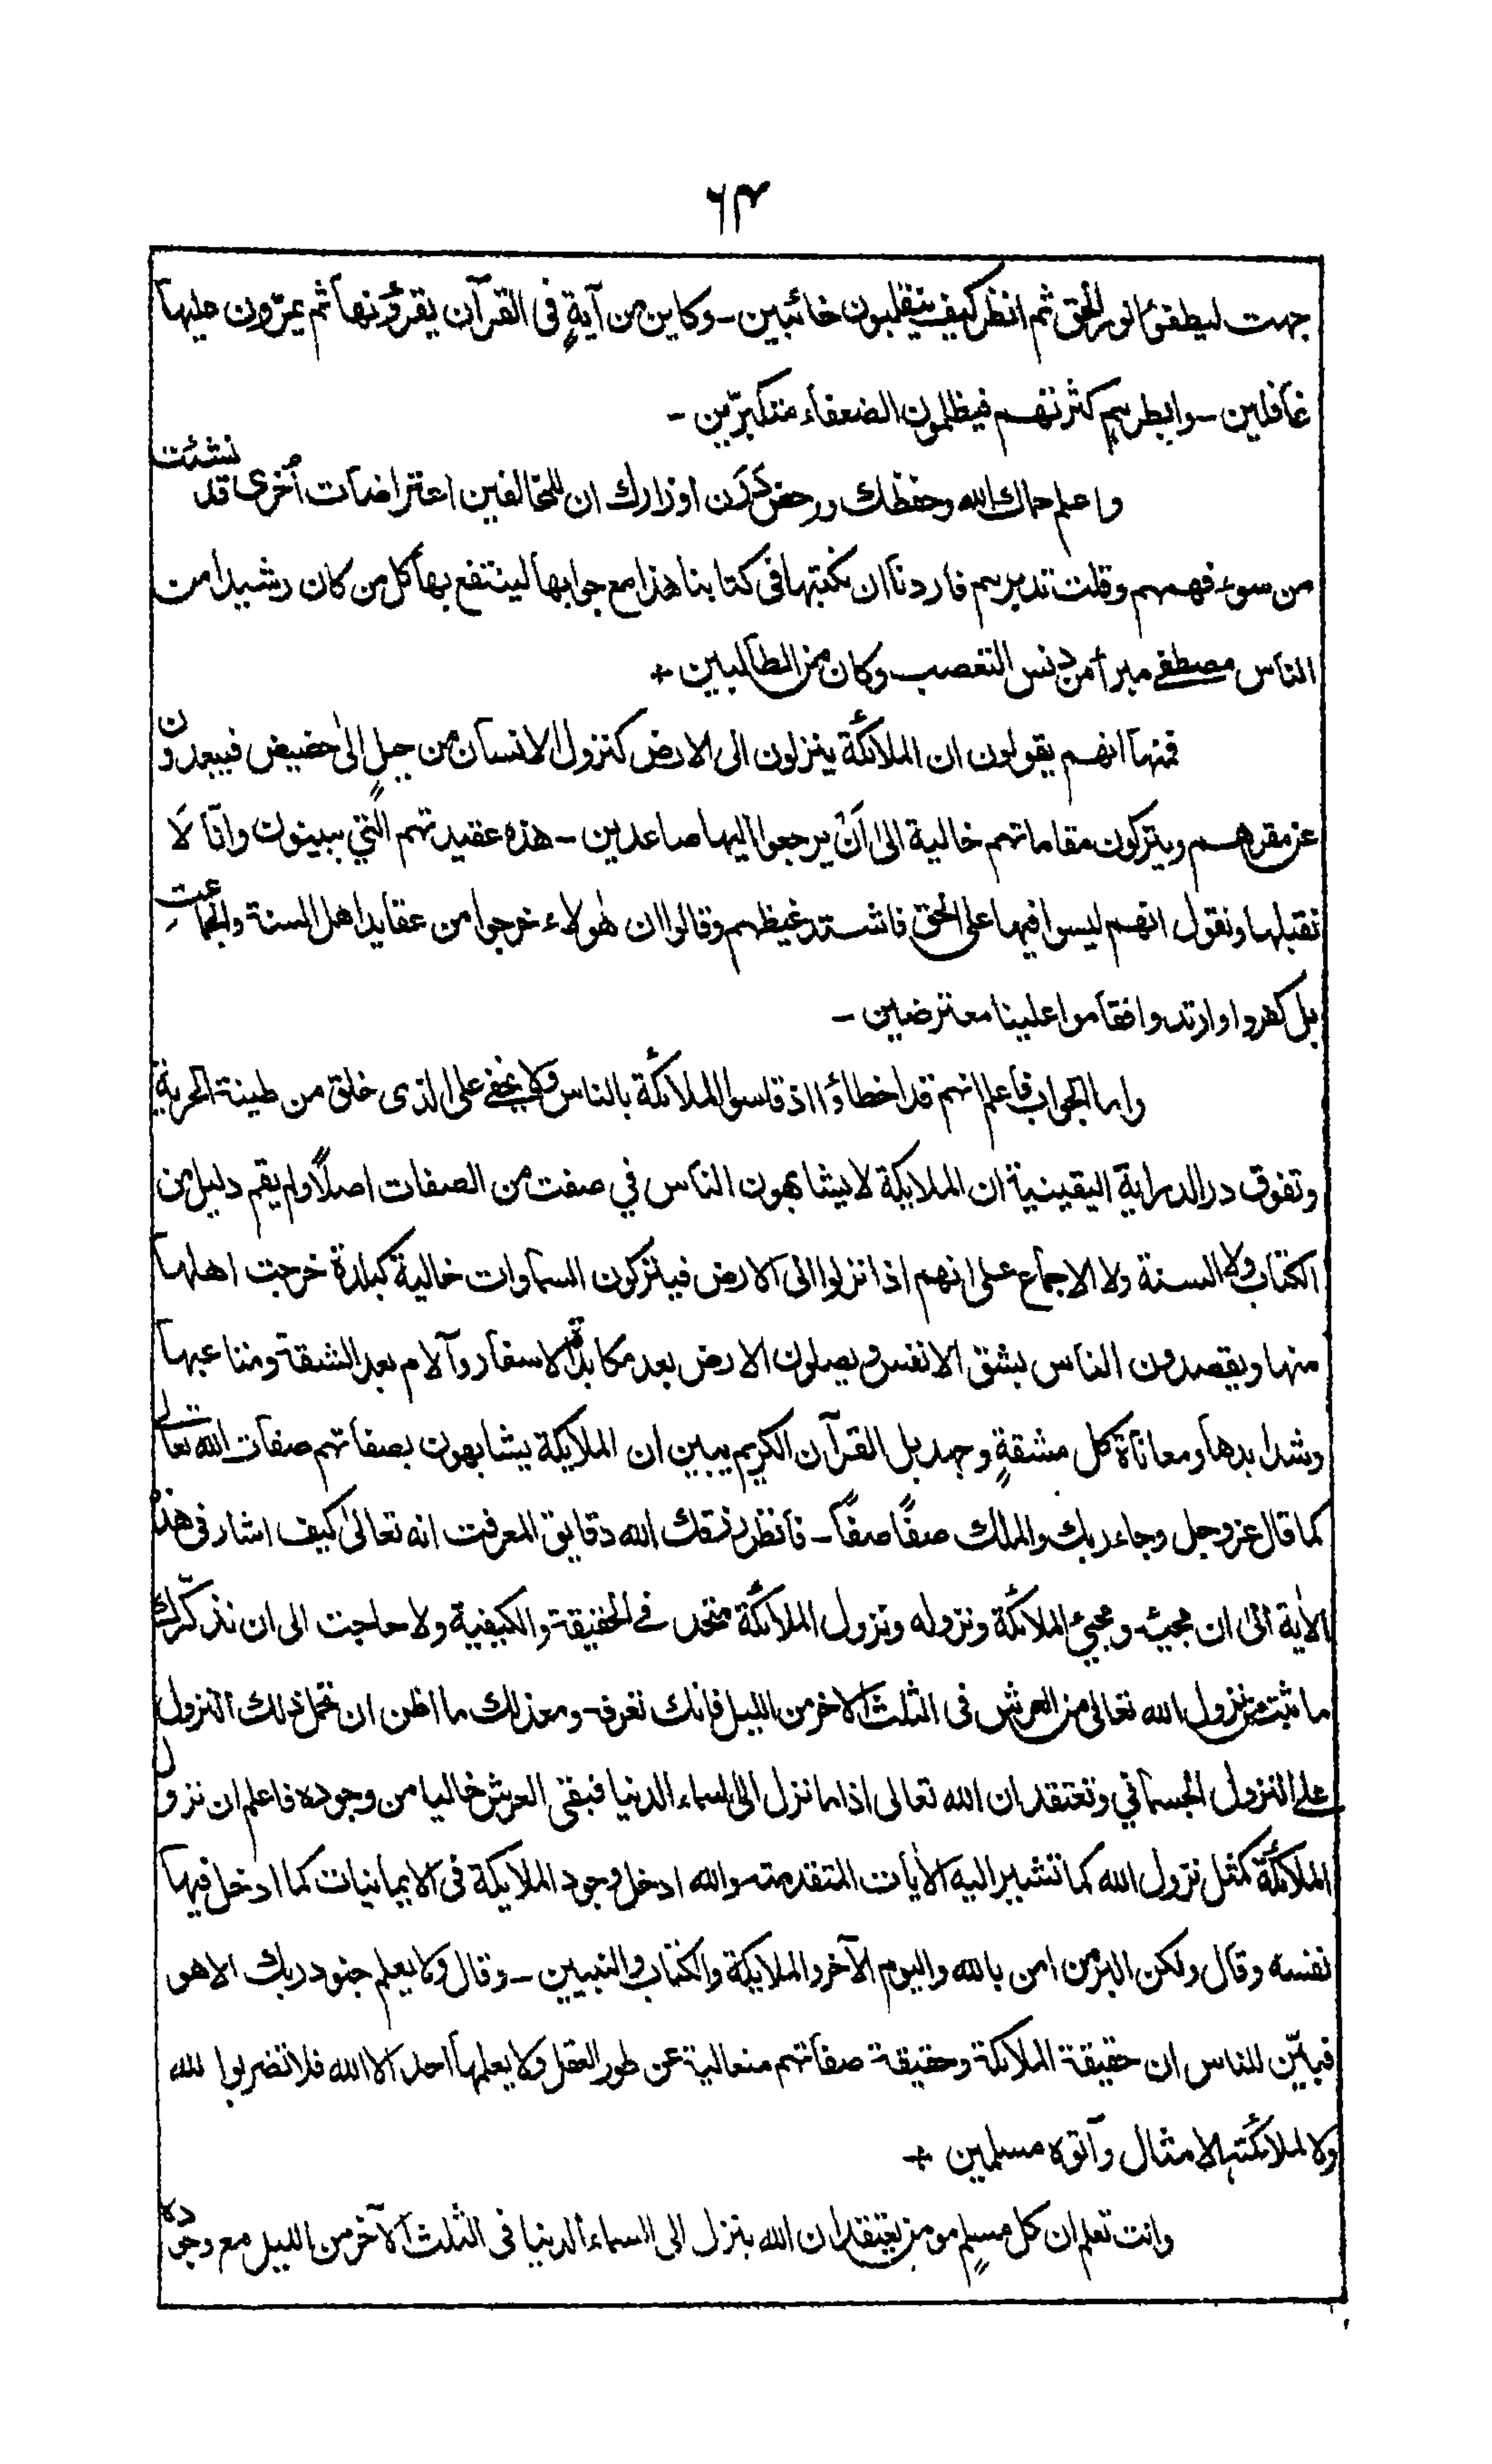 ٦٣
جهت ليطفئوا نور الحق ثم انظر كيف ينقلبون خائبين - وكاين من آيةٍ في القرآن يقرؤنها ثم يمرّون عليها
غافلين - وابطرهم كثرتهم فيظلمون الضعفاء متكبّرين -
واعلم حماك الله وحفظك ورحض دَرَن اوزارك ان للمخالفين اعتراضات أُخرى قد نشئت
من سوء فهمهم وقلت تدبرهم فاردنا ان نكتبها في كتابنا هذا مع جوابها لينتفع بها كل من كان رشيدا من
الناس مصطفى مبرأ من دنس التعصب وكان من الطالبين +
فمنها انهم يقولون ان الملائكة ينزلون الى الارض كنزول الانسان من جبلٍ الى حضيض فيبعدون
عن مقرهم ويتركون مقاماتهم خالية الى اَنْ يرجعوا اليها صاعدين - هذه عقيدتهم التي يبينون وانّا لَا
نقبلها ونقول انهم ليسوا فيها على الحق فاشتد غيظهم وقالوا ان هؤلاء خرجوا من عقايد اهل السنة والجماعت
بل كفروا وارتدوا فقاموا علينا معترضين -
واما الجواب فاعلم انهم قد اخطاؤا اذ قاسوا الملائكة بالناس ولا يخفى على الذي خلق من طينة الحرية
وتفوق در الدراية اليقينية ان الملايكة لا يشابهون الناس في صفت من الصفات اصلًا ولم يقم دليل من
الكتاب ولا السنة ولا الاجماع على انهم اذا نزلوا الى الارض فيتركون السماوات خالية كبلدة خرجت اهلها
منها ويقصدون الناس بشق الانفس ويصلون الارض بعد مكابدة الاسفار وآلام بعد الشقة ومتاعبها
وشدايدها ومعاناة كل مشقةٍ وجهد بل القرآن الكريم يبين ان الملايكة يشابهون بصفاتهم صفات الله تعالى
كما قال عز وجل وجاء ربك والملك صفًا صفًا - فانظر رزقك الله دقايق المعرفت انه تعالى كيف اشار في هذه
الأية الى ان مجيئه ومجيئ الملائكة ونزوله ونزول الملائكة متحد في الحقيقة والكيفية ولا حاجت الى ان نذكّرك
ما ثبت من نزول الله تعالى من العرش في الثلث الاخر من الليل فانك تعرفه ومعذلك ما اظن ان تحمل ذلك النزول
على النزول الجسماني وتعتقد ان الله تعالى اذا ما نزل الى السماء الدنيا فبقى العرش خاليا من وجوده فاعلم ان نزول
الملائكة كمثل نزول الله كما تشير اليه الأيات المتقدمة والله ادخل وجود الملايكة في الايمانيات كما ادخل فيها
نفسه وقال ولكن البر من امن بالله واليوم الآخر والملايكة والكتاب والنبيين - وقال وما يعلم جنود ربك الا هو
فبيّن للناس ان حقيقة الملائكة وحقيقة صفاتهم متعالية عن طور العقل ولا يعلمها احد الا الله فلا تضربوا لله
ولا لملائكته الامثال وآتوه مسلمين +
وانت تعلم ان كل مسلمٍ مومن يعتقد ان الله ينزل الى السماء الدنيا في الثلث الآخر من الليل مع وجوده